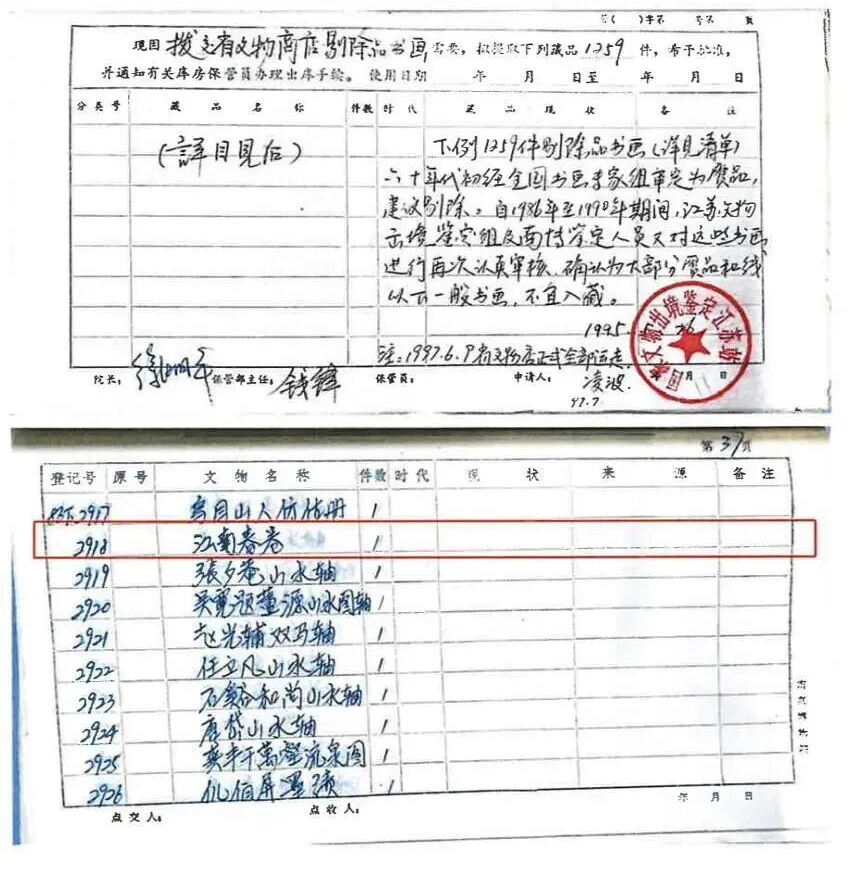 第( )字第 号第 页
现因拨交省文物商店剔除品书画需要，拟提取下列藏品1259件，希予批准，
并通知有关库房保管员办理出库手续。使用日期 年 月 日至 年 月 日
分类号 藏品名称 件数 时代 藏品现状 备注
(詳目見后)
下例1259件剔除品书画(详见清单)
六十年代初经全国书画专家组审定为赝品,
建议剔除。自1986年至1990年期间,江苏文物
出境鉴定组及南博鉴定人员又对这些书画
进行再次认真审核,确认为大部分赝品和线
以云一般书画,不宜入藏。
1995.5.26
国家文物出境鉴定江苏站
注:1997.6.9省文物店正式全部运走
院长: 徐湖平 保管部主任: 钱锋 保管员: 申请人: 凌波 年 月 日
97.7.
第37页
登记号 原号 文物名称 件数 时代 现状 来源 备注
2917 乌目山人仿古册 1
2918 江南春卷 1
2919 張夕菴山水轴 1
2920 吴寬題董源山水图轴 1
2921 赵光辅双马轴 1
2922 任立凡山水轴 1
2923 石谿和尚山水轴 1
2924 唐岱山水轴 1
2925 千萬壑流泉图 1
2926 屏墨 1
点交人: 点收人: 年 月 日